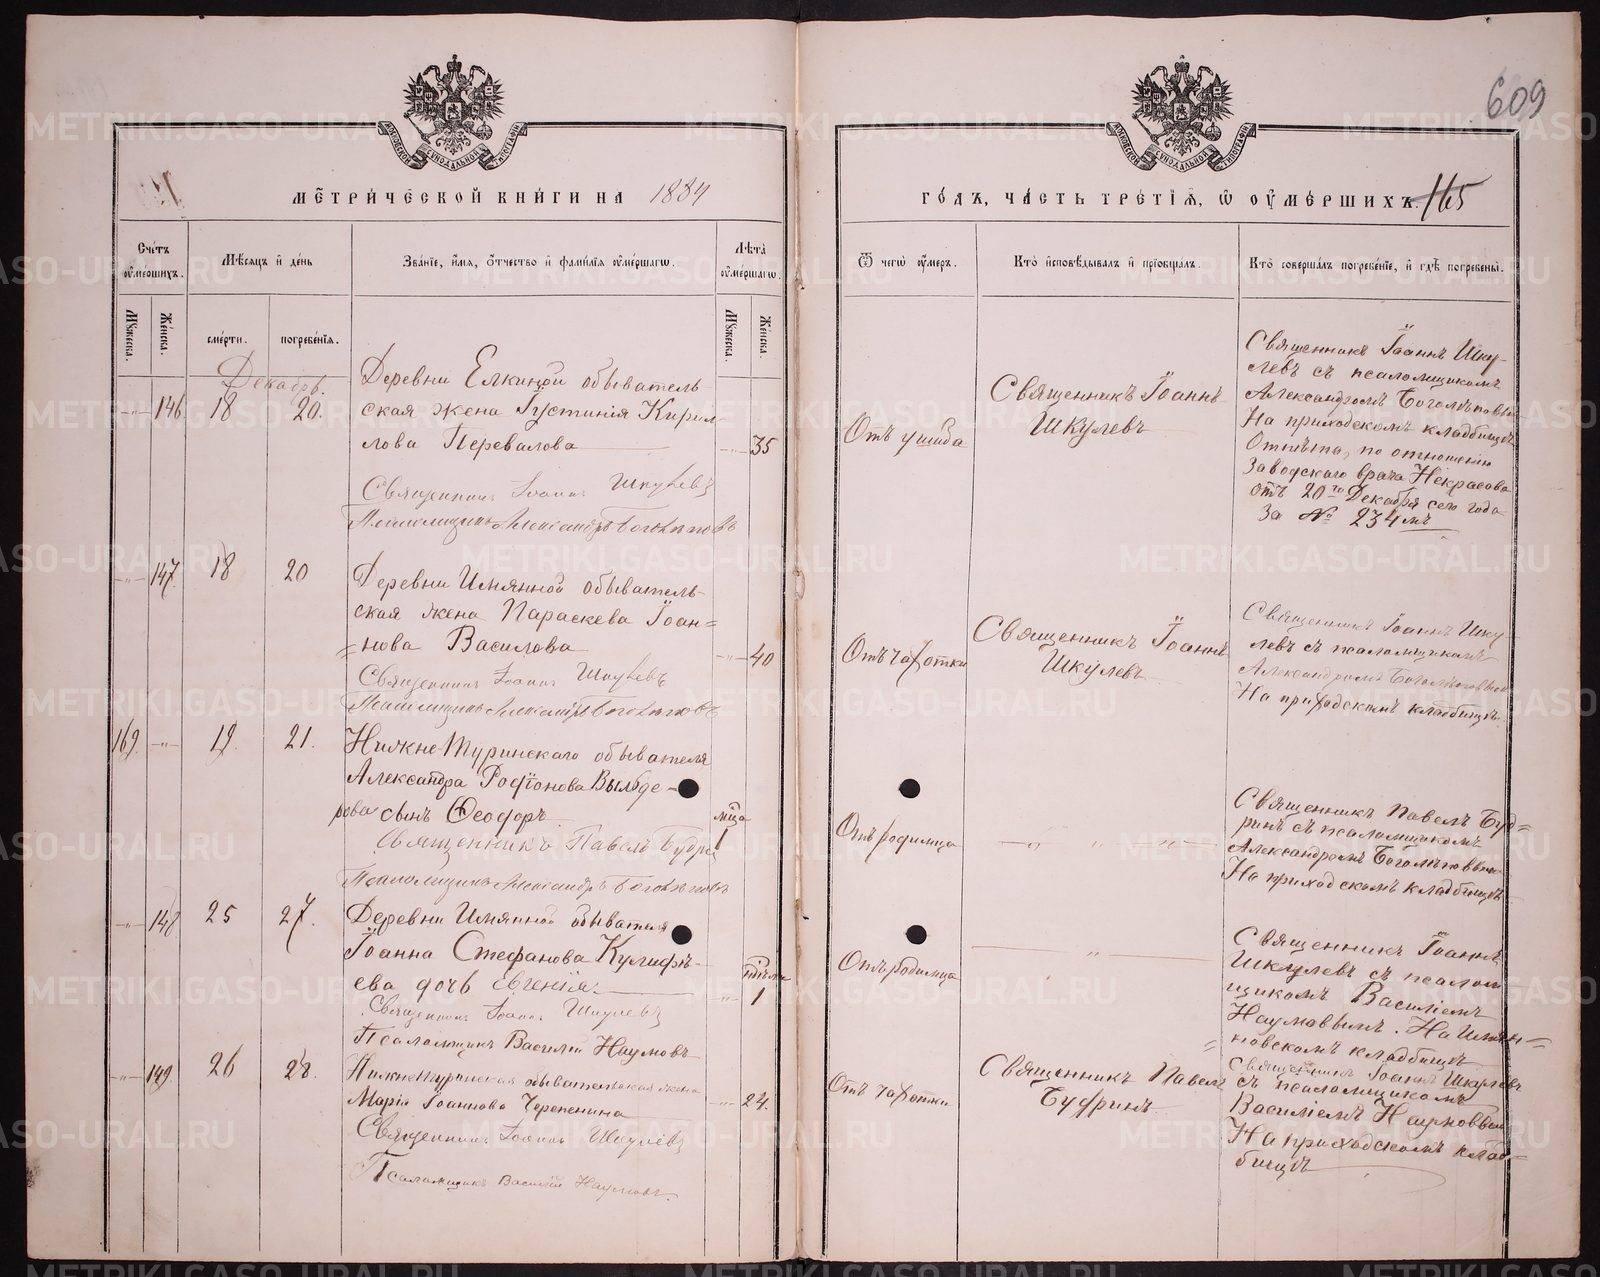 609
МОСКОВСКОЙ СѴНОДАЛЬНОЙ ТИПОГРАФІИ
МОСКОВСКОЙ СѴНОДАЛЬНОЙ ТИПОГРАФІИ
МЕТРИЧЕСКОЙ КНИГИ НА 1884
ГОДЪ, ЧАСТЬ ТРЕТІѦ, Ѿ ОУМЕРШИХЪ. 165
Счетъ оумершихъ.
Мѣсяцъ и день
Званіе, имя, отчество и фамилія оумершагѡ.
Лѣта оумершагѡ.
Ѿ чегѡ оумеръ.
Кто исповѣдывалъ и пріобщалъ.
Кто совершалъ погребеніе, и гдѣ погребены.
Мужеска.
Женска.
смерти.
погребенія.
Мужеска.
Женска.
Декабрь.
-"- 146 18 20.
Деревни Елкиной обыватель-
ская жена Іустинія Кирил-
лова Перевалова
-"- 35
Священникъ Іоаннъ Шкулевъ
Псаломщикъ Александръ Боголѣповъ
Отъ ушиба
Священникъ Іоаннъ
Шкулевъ
Священникъ Іоаннъ Шку-
левъ съ псаломщикомъ
Александромъ Боголѣповымъ
На приходскомъ кладбищѣ
Отпѣта, по отношенію
Заводскаго врача Некрасова
отъ 20го Декабря сего года
за № 234мъ
-"- 147. 18 20
Деревни Имянной обыватель-
ская жена Параскева Іоан=
=нова Василова
-"- 40
Священникъ Іоаннъ Шкулевъ
Псаломщикъ Александръ Боголѣповъ
Отъ чахотки
Священникъ Іоаннъ
Шкулевъ
Священникъ Іоаннъ Шку-
левъ съ псаломщикомъ
Александромъ Боголѣповымъ
На приходскомъ кладбищѣ
169. -"- 19. 21.
Нижне Туринскаго обывателя
Александра Родіонова
рова сынъ Ѳеодоръ
мца
1
Священникъ Павелъ Будринъ
Псаломщикъ Александръ Боголѣповъ
Отъ родимца
-"- " -"-
Священникъ Павелъ Буд=
ринъ съ псаломщикомъ
Александромъ Боголѣповымъ
На приходскомъ кладбищѣ
-"- 148 25 27.
Деревни Имянной обывателя
Іоанна Стефанова
ева дочь Евгенія
-"- 1
Священникъ Іоаннъ Шкулевъ
Псаломщикъ Василій Наумовъ
Отъ родимца
"
Священникъ Іоаннъ
Шкулевъ съ псалом
щикомъ Василіемъ
Наумовымъ. На Имян=
новскомъ кладбищѣ
-"- 149 26 28.
Нижнетуринская обывательская жена
Марія Іоаннова Черепенина
-"- 24.
Священникъ Іоаннъ Шкулевъ
Псаломщикъ Василій Наумовъ.
Отъ чахотки
Священникъ Павелъ
Будринъ
Священникъ Іоаннъ Шкулевъ
съ псаломщикомъ
Василіемъ Наумовымъ
На приходскомъ клад=
бищѣ
METRIKI.GASO-URAL.RU